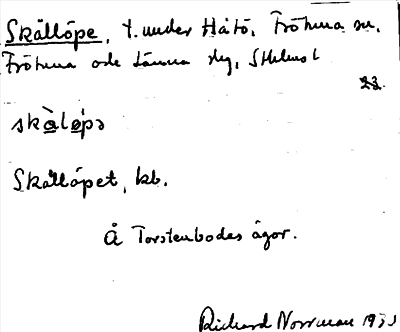 Skållöpe, t. under Håtö, Frötuna sn,
Frötuna och Länna skg, Sthlms l
23.
skàlø̀pə
Skållöpet, kb.
Å Torstenbodas ägor.
Richard Norrman 1933